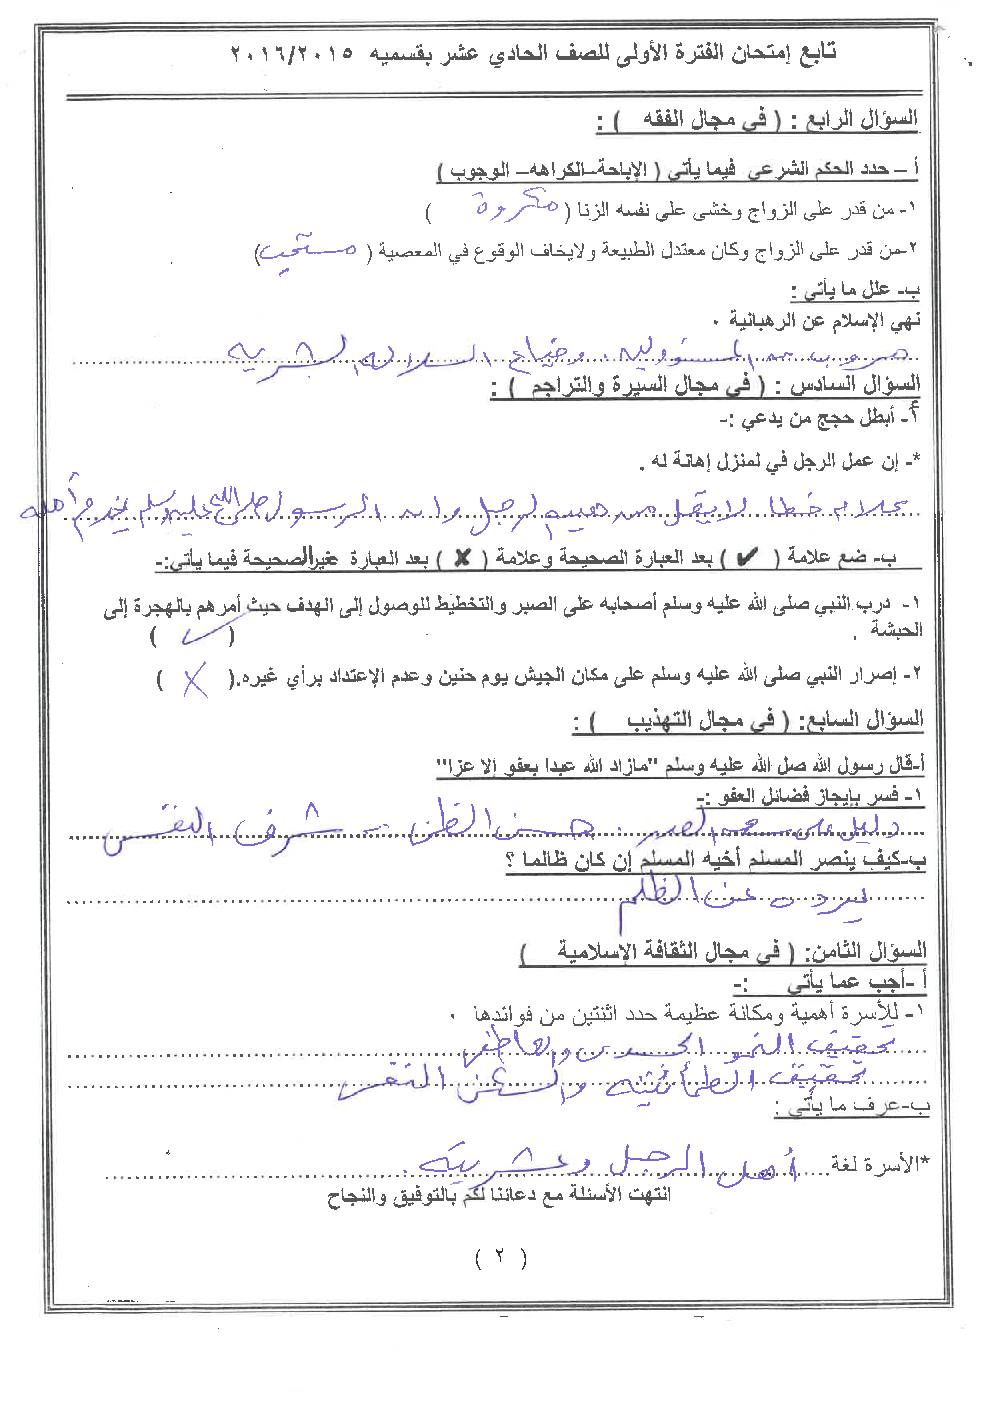 تابع إمتحان الفترة الأولى للصف الحادي عشر بقسميه ٢٠١٦/٢٠١٥
السؤال الرابع : ( في مجال الفقه ) :
أ – حدد الحكم الشرعي فيما يأتي ( الإباحة–الكراهه– الوجوب )
١- من قدر على الزواج وخشى على نفسه الزنا ( مكروة )
٢-من قدر على الزواج وكان معتدل الطبيعة ولايخاف الوقوع في المعصية ( مستحب )
ب- علل ما يأتي :
نهي الإسلام عن الرهبانية .
هروب من المسئولية، وضياع السلالة البشرية
السؤال السادس : ( في مجال السيرة والتراجم ) :
أ- أبطل حجج من يدعي :-
*- إن عمل الرجل في لمنزل إهانة له .
كلام خطا لا يقلل من الرجل وانه الرسول صلى الله عليه وسلم يخدم أهله
ب- ضع علامة ( ✔ ) بعد العبارة الصحيحة وعلامة ( ✘ ) بعد العبارة غير الصحيحة فيما يأتي:-
١- درب النبي صلى الله عليه وسلم أصحابه على الصبر والتخطيط للوصول إلى الهدف حيث أمرهم بالهجرة إلى
الحبشة . ( ✓ )
٢- إصرار النبي صلى الله عليه وسلم على مكان الجيش يوم حنين وعدم الإعتداد برأي غيره.( X )
السؤال السابع: ( في مجال التهذيب ) :
أ-قال رسول الله صل الله عليه وسلم "مازاد الله عبدا بعفو إلا عزا"
١- فسر بإيجاز فضائل العفو :-
دليل على سعه الصدر : حسن الظن - شرف النفس
ب-كيف ينصر المسلم أخيه المسلم إن كان ظالما ؟
يردده عن الظلم
السؤال الثامن: ( في مجال الثقافة الإسلامية )
أ -أجب عما يأتي :-
١- للأسرة أهمية ومكانة عظيمة حدد اثنتين من فوائدها .
تحقيق النمو الجسدي والعاطفى
تحقيق الطمأنينه والسكن النفسى
ب-عرف ما يأتي :
*الأسرة لغة أهل الرجل وعشريته .
انتهت الأسئلة مع دعائنا لكم بالتوفيق والنجاح
( ٢ )